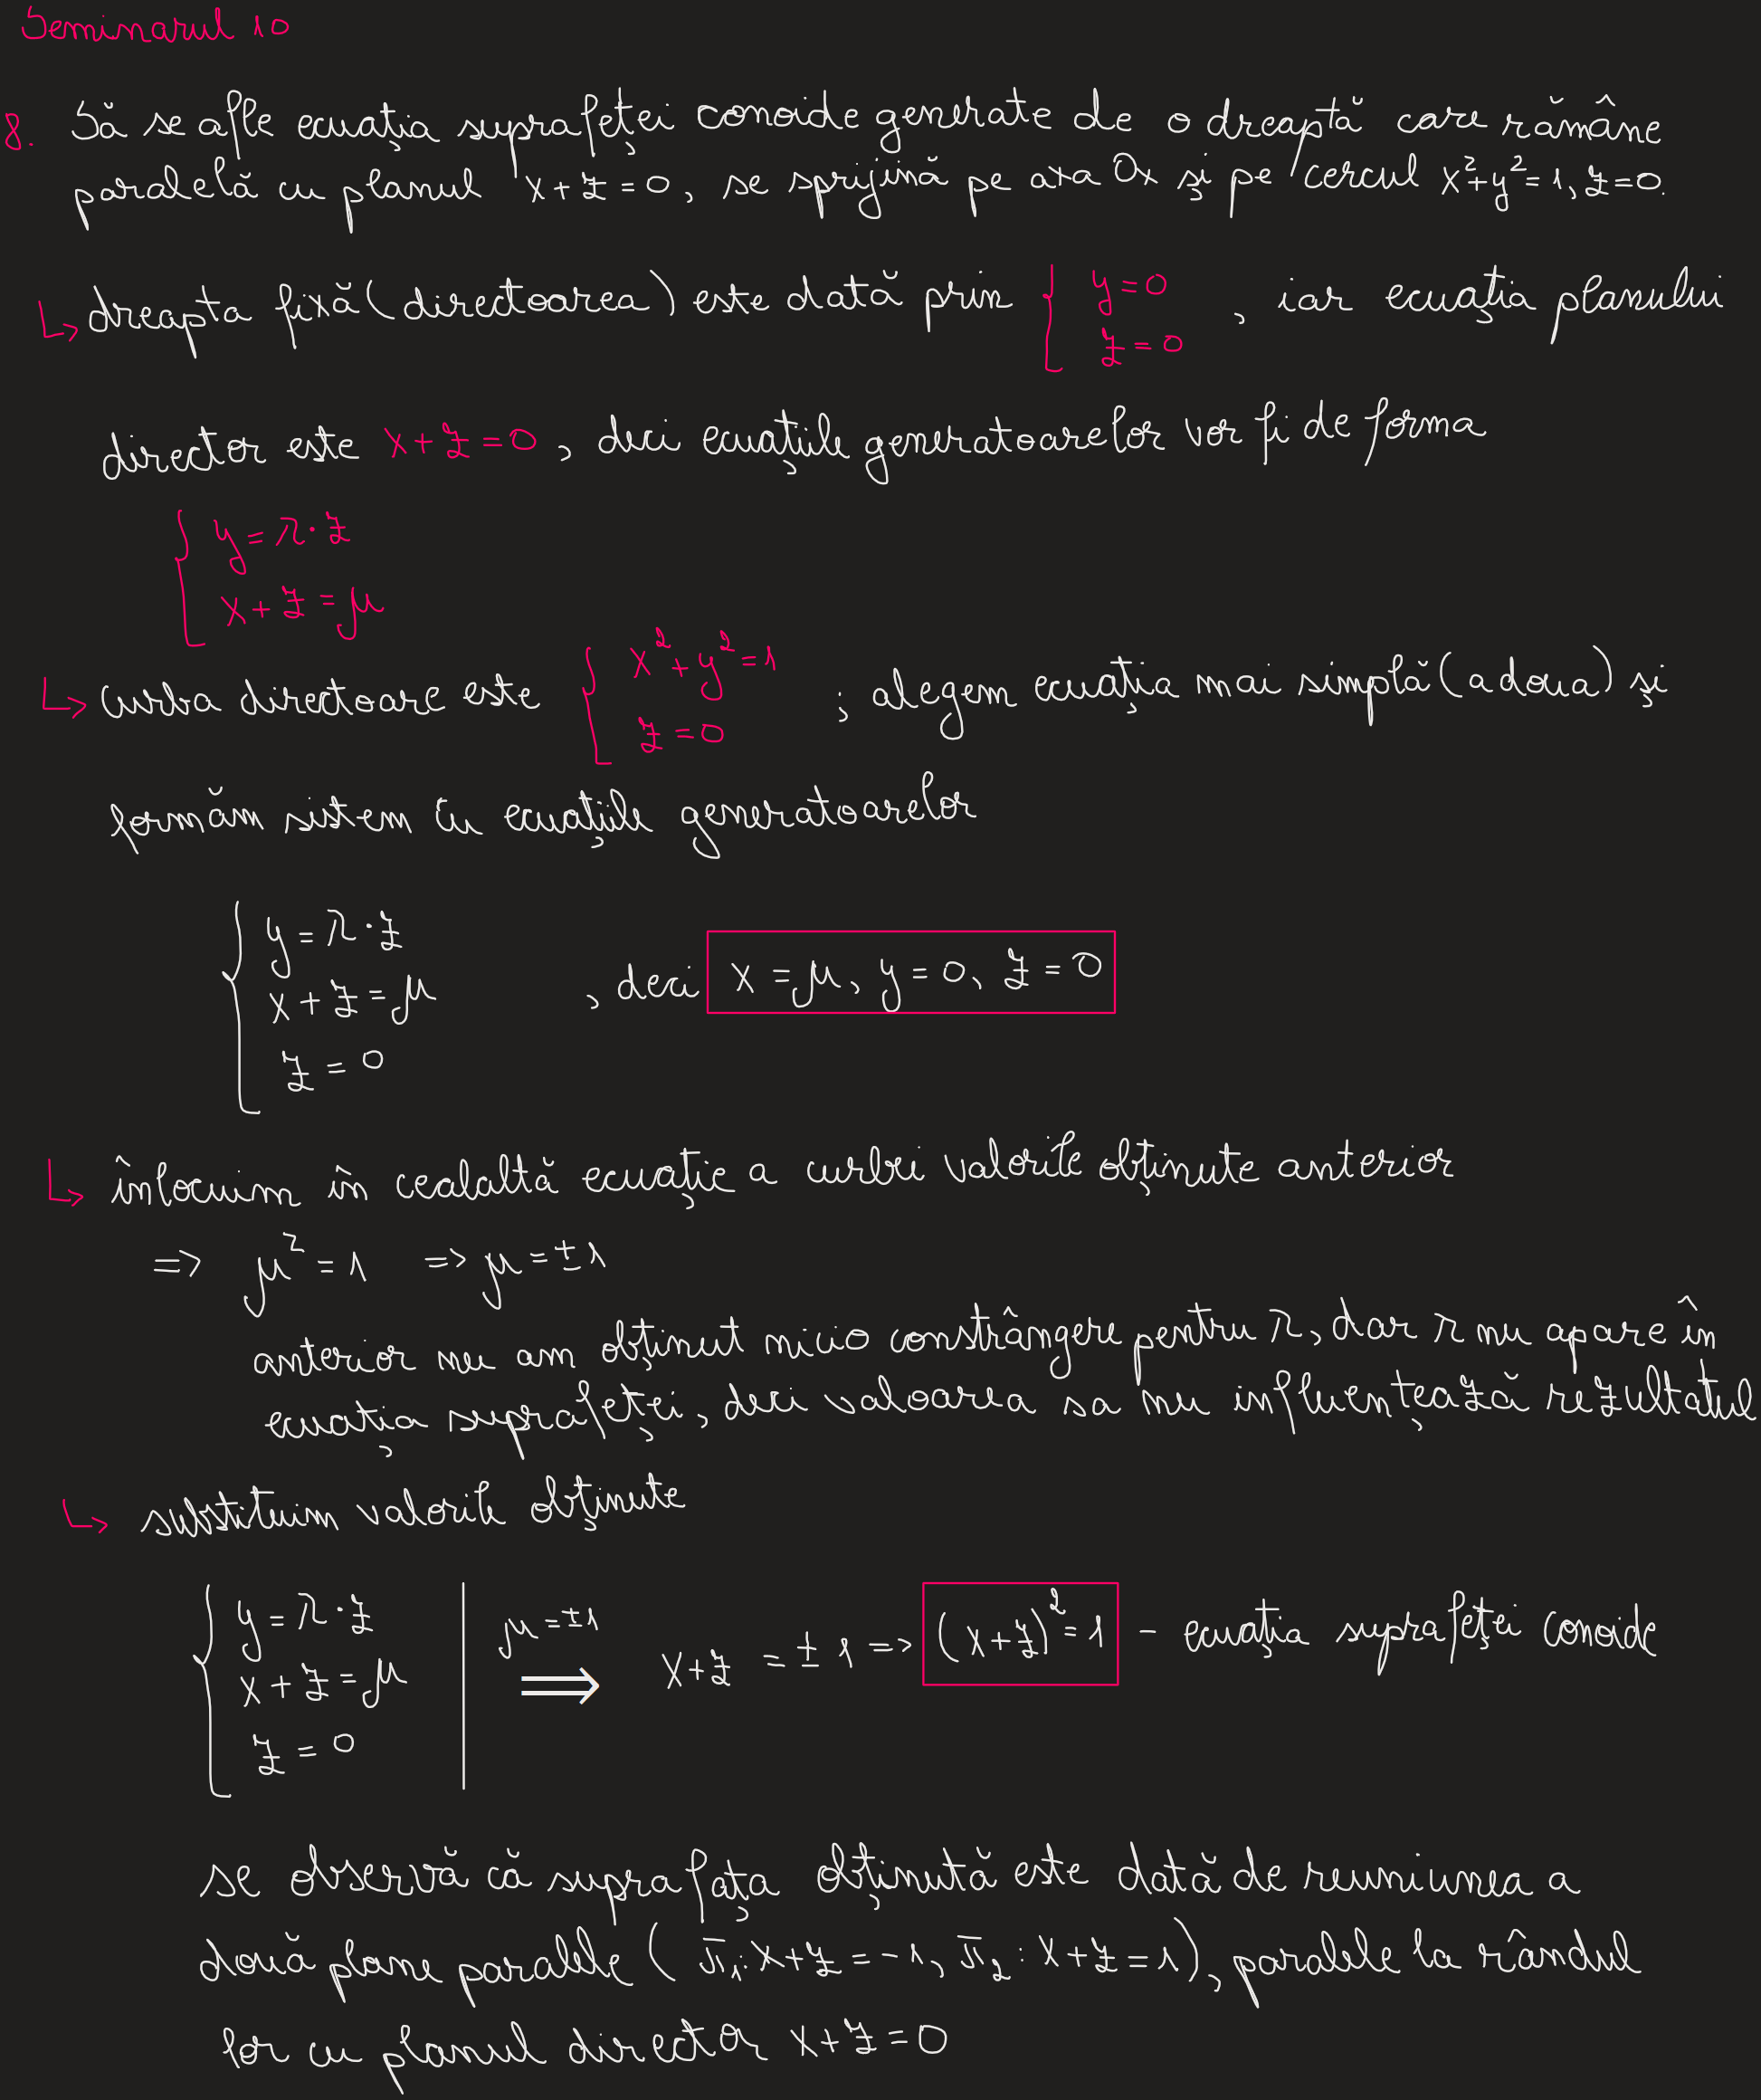 Seminarul 10
8. Să se afle ecuația suprafeței conoide generate de o dreaptă care rămâne
paralelă cu planul x+z=0, se sprijină pe axa Ox și pe cercul x²+y²=1, z=0.
↳ dreapta fixă (directoarea) este dată prin { y=0 , iar ecuația planului
z=0
director este x+z=0, deci ecuațiile generatoarelor vor fi de forma
{ y=λ·z
x+z=μ
↳ curba directoare este { x²+y²=1 ; alegem ecuația mai simplă (a doua) și
z=0
formăm sistem cu ecuațiile generatoarelor
{ y=λ·z
x+z=μ , deci x=μ, y=0, z=0
z=0
↳ înlocuim în cealaltă ecuație a curbei valorile obținute anterior
=> μ²=1 => μ=±1
anterior nu am obținut nicio constrângere pentru λ, dar λ nu apare în
ecuația suprafeței, deci valoarea sa nu influențează rezultatul
↳ substituim valorile obținute
{ y=λ·z
x+z=μ | μ=±1 ⟹ x+z=±1 => (x+z)²=1 - ecuația suprafeței conoide
z=0
se observă că suprafața obținută este dată de reuniunea a
două plane paralele (π₁: x+z=-1, π₂: x+z=1), paralele la rândul
lor cu planul director x+z=0